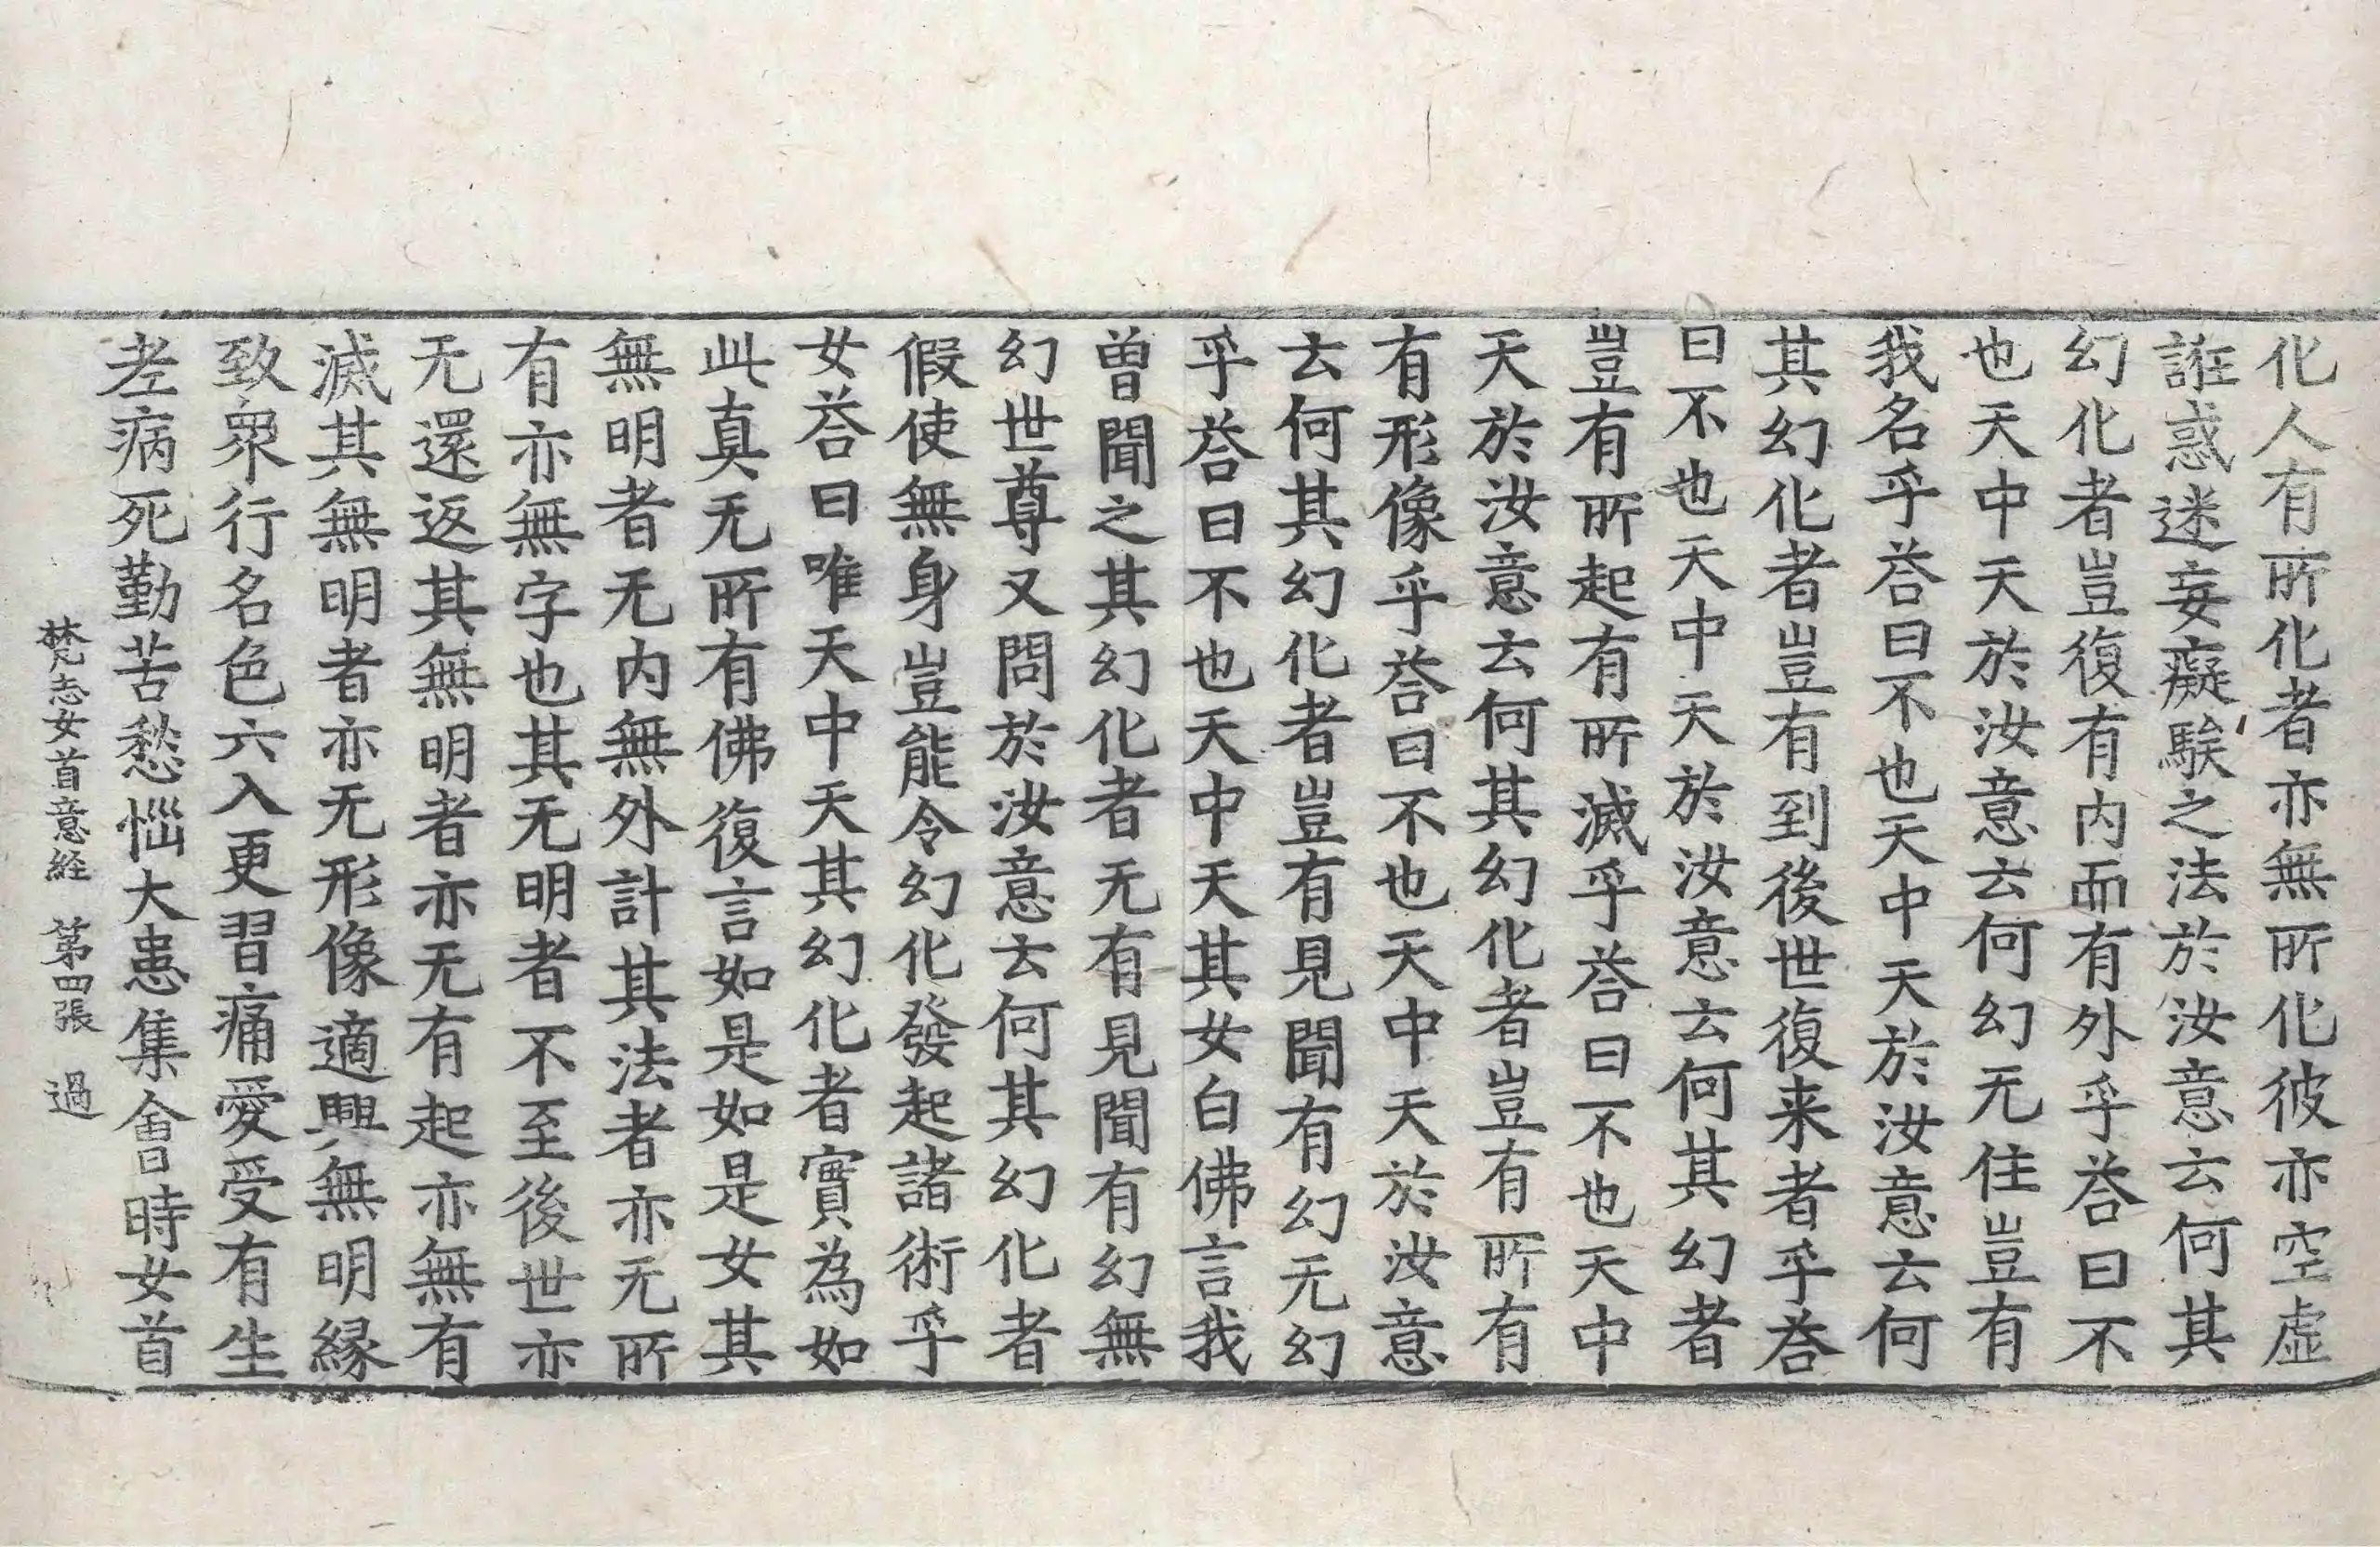 化人有所化者亦無所化彼亦空虛
誑惑迷妄癡騃之法於汝意云何其
幻化者豈復有内而有外乎荅曰不
也天中天於汝意云何幻无住豈有
我名乎荅曰不也天中天於汝意云何
其幻化者豈有到後世復来者乎荅
曰不也天中天於汝意云何其幻者
豈有所起有所滅乎荅曰不也天中
天於汝意云何其幻化者豈有所有
有形像乎荅曰不也天中天於汝意
云何其幻化者豈有見聞有幻无幻
乎荅曰不也天中天其女白佛言我
曽聞之其幻化者无有見聞有幻無
幻世尊又問於汝意云何其幻化者
假使無身豈能令幻化發起諸術乎
女荅曰唯天中天其幻化者實為如
此真无所有佛復言如是如是女其
無明者无内無外計其法者亦无所
有亦無字也其无明者不至後世亦
无還返其無明者亦无有起亦無有
滅其無明者亦无形像適興無明縁
致衆行名色六入更習痛愛受有生
老病死勤苦愁惱大患集會時女首
梵志女首意経　第四張　過